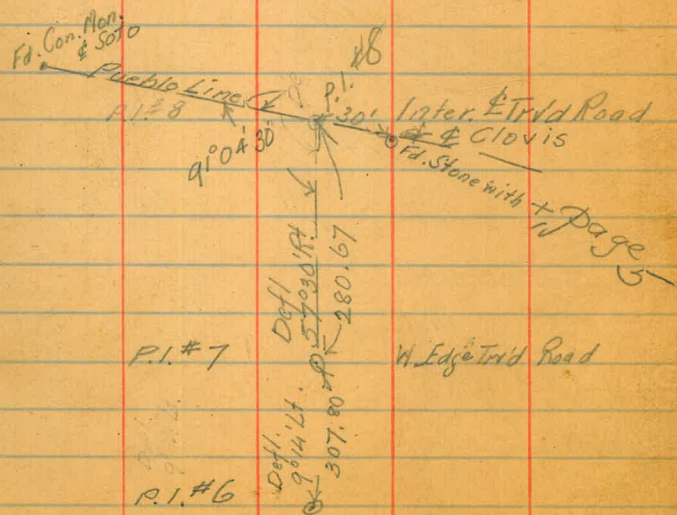 Fd. Con. Mon.
& Soto
Pueblo Line
P.I. #8
91° 04' 30"
P.I. #8
30'
Inter. ℄ Trv'd Road
& ℄ Clovis
Fd. Stone with +
Page 5
Defl. 57°30' Rt.
280.67
P.I. #7
W. Edge Trv'd Road
Defl. 9°14' Lt.
307.80
P.I. #6